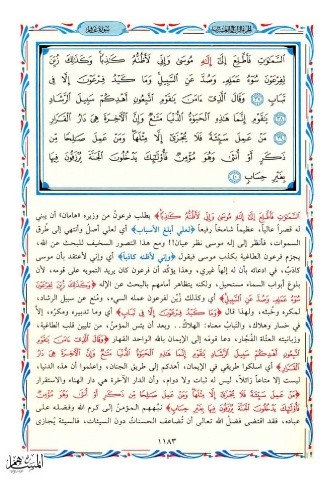 سورة غافر
السَّمَٰوَٰتِ فَأَطَّلِعَ إِلَىٰ إِلَٰهِ مُوسَىٰ وَإِنِّي لَأَظُنُّهُ كَٰذِبًا وَكَذَٰلِكَ زُيِّنَ
لِفِرْعَوْنَ سُوءُ عَمَلِهِ وَصُدَّ عَنِ السَّبِيلِ وَمَا كَيْدُ فِرْعَوْنَ إِلَّا فِي
تَبَابٍ ٣٧ وَقَالَ الَّذِي ءَامَنَ يَٰقَوْمِ اتَّبِعُونِ أَهْدِكُمْ سَبِيلَ الرَّشَادِ
٣٨ يَٰقَوْمِ إِنَّمَا هَٰذِهِ الْحَيَوٰةُ الدُّنْيَا مَتَٰعٌ وَإِنَّ الْآخِرَةَ هِيَ دَارُ الْقَرَارِ
٣٩ مَنْ عَمِلَ سَيِّئَةً فَلَا يُجْزَىٰ إِلَّا مِثْلَهَا وَمَنْ عَمِلَ صَٰلِحًا مِّن
ذَكَرٍ أَوْ أُنثَىٰ وَهُوَ مُؤْمِنٌ فَأُولَٰئِكَ يَدْخُلُونَ الْجَنَّةَ يُرْزَقُونَ فِيهَا
بِغَيْرِ حِسَابٍ ٤٠
السَّمَٰوَٰتِ فَأَطَّلِعَ إِلَىٰ إِلَٰهِ مُوسَىٰ وَإِنِّي لَأَظُنُّهُ كَٰذِبًا﴾ يطلب فرعون من وزيره «هامان» أن يبني
له قصراً عالياً، عظيماً شامخاً رفيعاً ﴿لعلي أبلغ الأسباب﴾ أي لعلي أصل وأنتهي إلى طرق
السموات، فأنظر إلى إله موسى نظر عيان!! ومع هذا التصور السخيف للبحث عن الله،
يجزم فرعون الطاغية بكذب موسى فيقول ﴿وإني لأظنه كاذباً﴾ أي وإني لأعتقد بأن موسى
كاذب، في ادعائه بأن له إلهاً غيري، وهذا يؤكد أن فرعون كان يريد التمويه على قومه، لأن
بلوغ أبواب السماء مستحيل، ولكنه يتظاهر أمامهم بالبحث عن الإله ﴿وَكَذَٰلِكَ زُيِّنَ لِفِرْعَوْنَ
سُوءُ عَمَلِهِ وَصُدَّ عَنِ السَّبِيلِ﴾ أي وكذلك زُيّن لفرعون عمله السيء، ومُنع عن سبيل الرشاد،
لمكره وخبثه، ولهذا قال ﴿وَمَا كَيْدُ فِرْعَوْنَ إِلَّا فِي تَبَابٍ﴾ أي وما تدبيره ومكره، إلا
في خسار وهلاك، والتباب معناه: الهلاك.. وبعد أن يئس المؤمن، من تليين قلب الطاغية،
وزبانيته العتاة الفُجار، دعا قومه إلى الإيمان بالله الواحد القهار ﴿وَقَالَ الَّذِي ءَامَنَ يَٰقَوْمِ
اتَّبِعُونِ أَهْدِكُمْ سَبِيلَ الرَّشَادِ يَٰقَوْمِ إِنَّمَا هَٰذِهِ الْحَيَوٰةُ الدُّنْيَا مَتَٰعٌ وَإِنَّ الْآخِرَةَ هِيَ دَارُ
الْقَرَارِ﴾ أي اسلكوا طريقي في الإيمان، أهدكم إلى طريق الجنان، واعلموا أن هذه الدنيا،
ليست إلا متاعاً زائلاً، ليس له ثبات ولا دوام، وأن الدار الآخرة هي دار الهناء والاستقرار
﴿مَنْ عَمِلَ سَيِّئَةً فَلَا يُجْزَىٰ إِلَّا مِثْلَهَا وَمَنْ عَمِلَ صَٰلِحًا مِّن ذَكَرٍ أَوْ أُنثَىٰ وَهُوَ مُؤْمِنٌ
فَأُولَٰئِكَ يَدْخُلُونَ الْجَنَّةَ يُرْزَقُونَ فِيهَا بِغَيْرِ حِسَابٍ﴾ نبههم المؤمن إلى كرم الله وفضله على
عباده، فقد اقتضى فضل الله تعالى أن تُضاعف الحسنات دون السيئات، فالسيئة يُجازى
١١٨٣